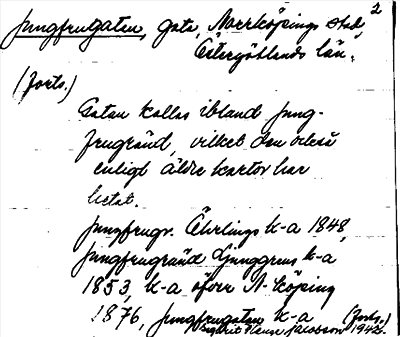 2
Jungfrugatan, gata, Norrköpings stad,
Östergötlands län.
(Forts.)
Gatan kallas ibland Jung-
frugränd, vilket den också
enligt äldre kartor har
hetat.
Jungfrugr. Öhrlings k-a 1848,
Jungfrugränd Ljunggrens k-a
1853, k-a öfver N-köping
1876, Jungfrugatan k-a (Forts.)
Ingrid Jacobsson 1942.